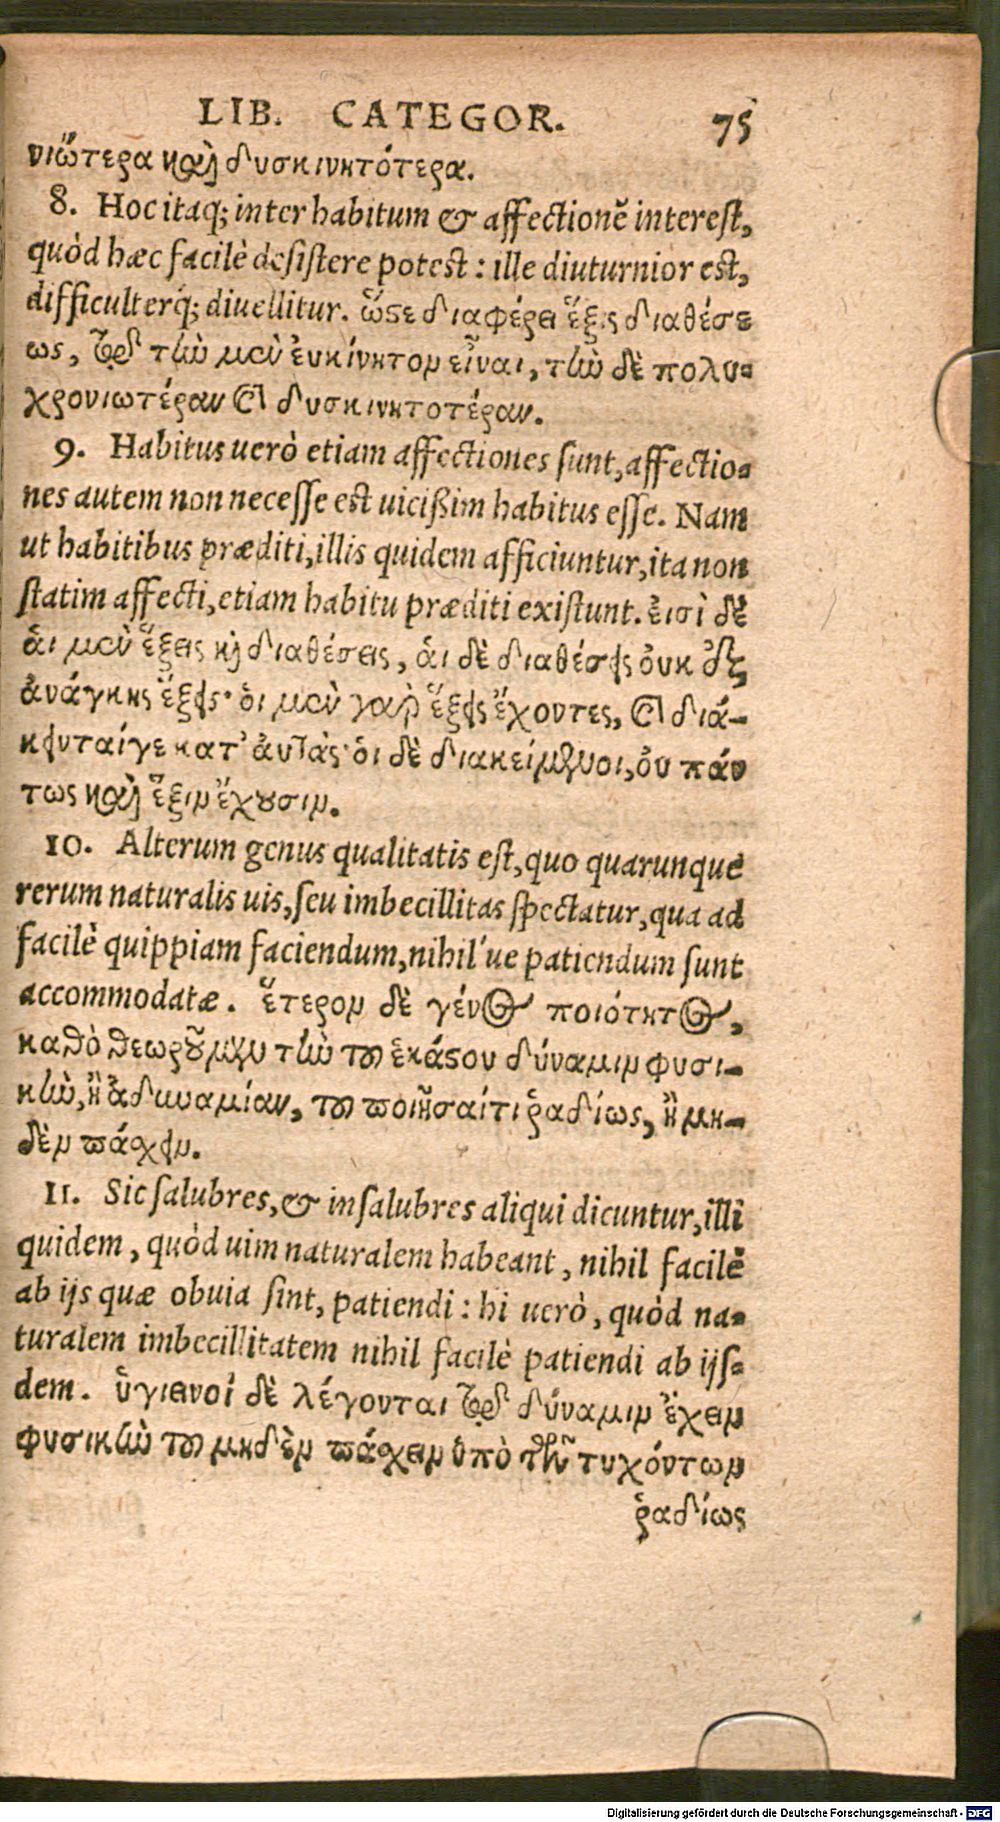 LIB. CATEGOR. 75
νιώτερα καὶ δυσκινητότερα.
8. Hoc itaq; inter habitum & affectionẽ interest,
quòd hæc facilè desistere potest: ille diuturnior est,
difficulterq́; diuellitur. ὥςε διαφέρει ἕξις διαθέσε
ως, τῷ τὴν μὲν ἐυκίνητον εἶναι, τὴν δὲ πολυ-
χρονιωτέραν καὶ δυσκινητοτέραν.
9. Habitus uerò etiam affectiones sunt, affectio-
nes autem non necesse est uicißim habitus esse. Nam
ut habitibus præditi, illis quidem afficiuntur, ita non
statim affecti, etiam habitu præditi existunt. ἐισὶ δὲ
ἁι μὲν ἕξεις κὶ διαθέσεις, ἁι δὲ διαθέσεις ὀυκ ἐξ
ἀνάγκης ἕξεις· ὁι μὲν γαρ̀ ἕξεις ἔχοντες, καὶ διά-
κεινταίγε κατ' ἀυτὰς· ὁι δὲ διακείμενοι, ὀυ πάν
τως καὶ ἕξιν ἔχουσιν.
10. Alterum genus qualitatis est, quo quarunque
rerum naturalis uis, seu imbecillitas spectatur, qua ad
facilè quippiam faciendum, nihil´ue patiendum sunt
accommodatæ. ἕτερον δὲ γένος ποιότητος,
καθὸ θεωροῦμεν τὴν τοῦ ἑκάςου δύναμιν φυσι-
κὴν, ἢ ἀδυναμίαν, τοῦ ποιῆσαίτι ῥαδίως, ἢ μη-
δὲν πάχειν.
11. Sic salubres, & insalubres aliqui dicuntur, illi
quidem, quòd uim naturalem habeant, nihil facilè
ab ijs quæ obuia sint, patiendi: hi uerò, quòd na-
turalem imbecillitatem nihil facilè patiendi ab ijs-
dem. ὑγιεινοί δὲ λέγονται τῷ δύναμιν ἔχειν
φυσικὴν τοῦ μηδὲν πάχειν ὑπὸ τῶν τυχόντων
ῥαδίως
Digitalisierung gefördert durch die Deutsche Forschungsgemeinschaft - DFG